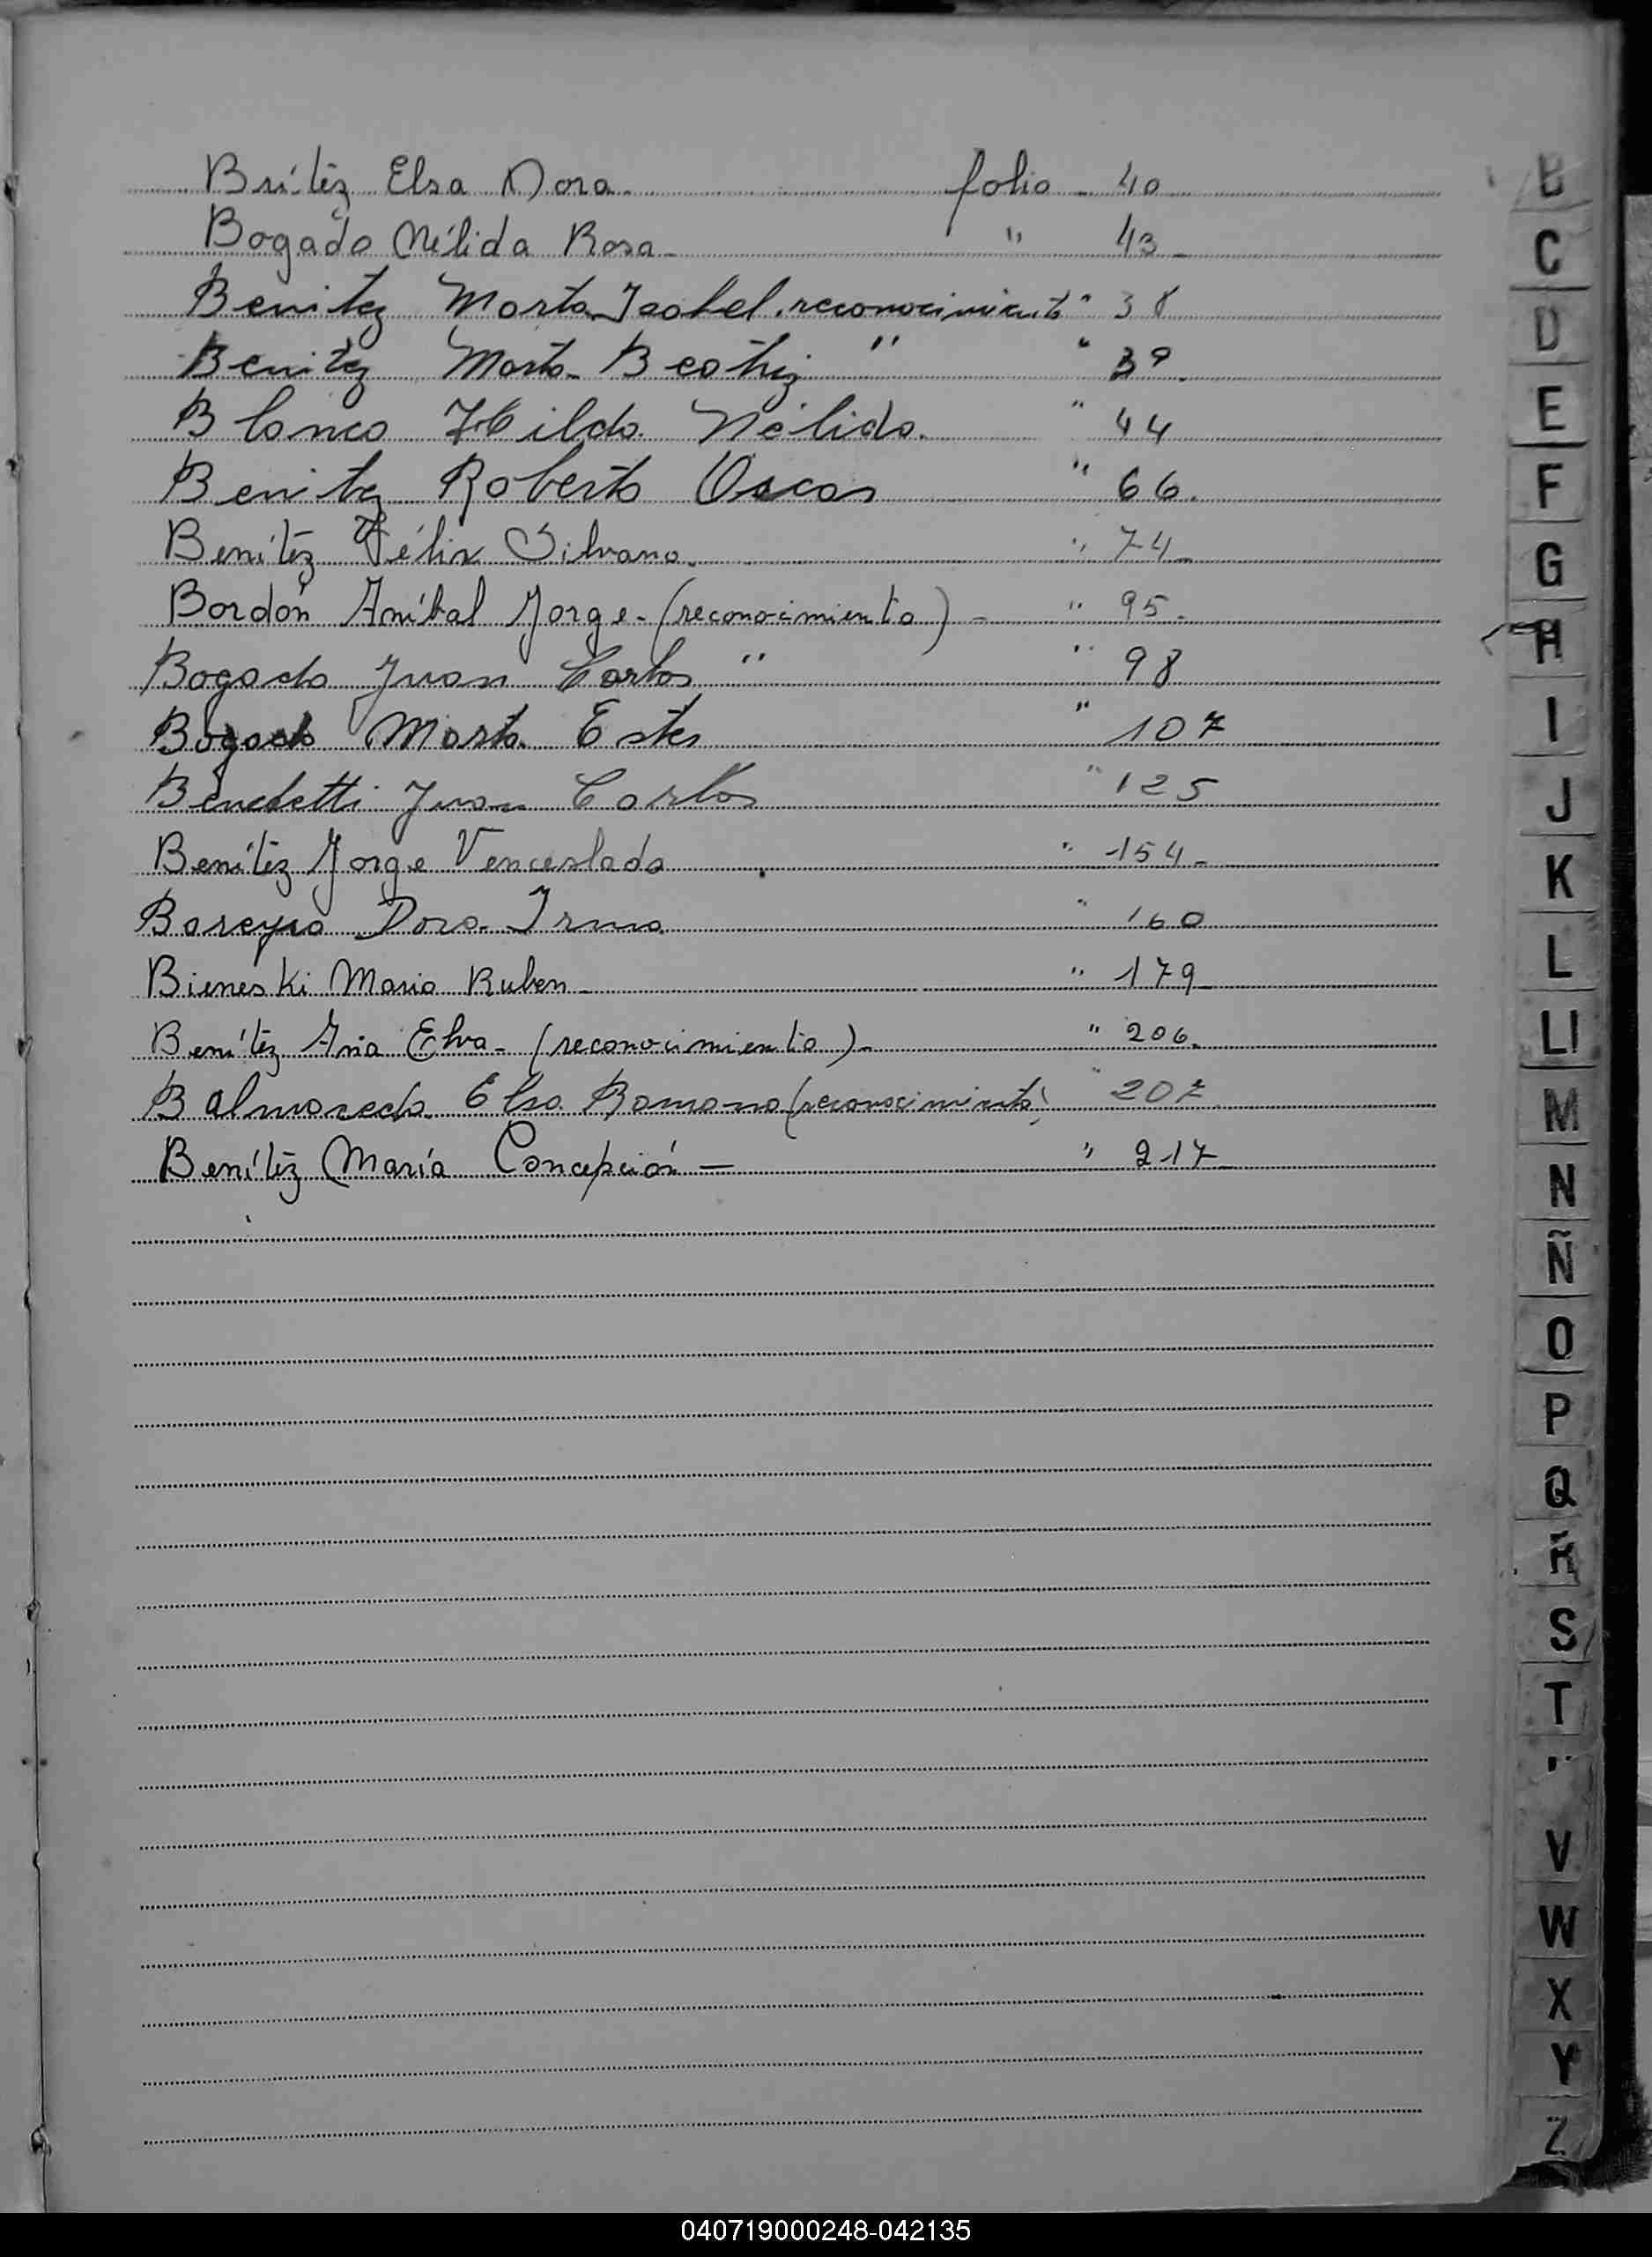 Brítez Elsa Dora folio - 40
Bogado Nélida Rosa " 43
Benitez Marta Isabel. reconocimiento " 38
Benitez Marta Beatriz " " 39.
Blanco Hilda Nélida. " 44
Benitez Roberto Oscar " 66.
Benítez Félix Silvano " 74
Bordón Aníbal Jorge - (reconocimiento) - " 95.
Bogado Juan Carlos " " 98
Bogado Marta Ester " 107
Benedetti Juan Carlos " 125
Benítez Jorge Venceslado " 154-
Bareyro Dora Irma " 160
Bieneski Mario Ruben " 179
Benítez Ana Elva - (reconocimiento) - " 206.
Balmaceda Elsa Ramona (reconocimiento) " 207
Benítez María Concepción — " 217
B
C
D
E
F
G
H
I
J
K
L
Ll
M
N
Ñ
O
P
Q
R
S
T
V
W
X
Y
Z
040719000248-042135